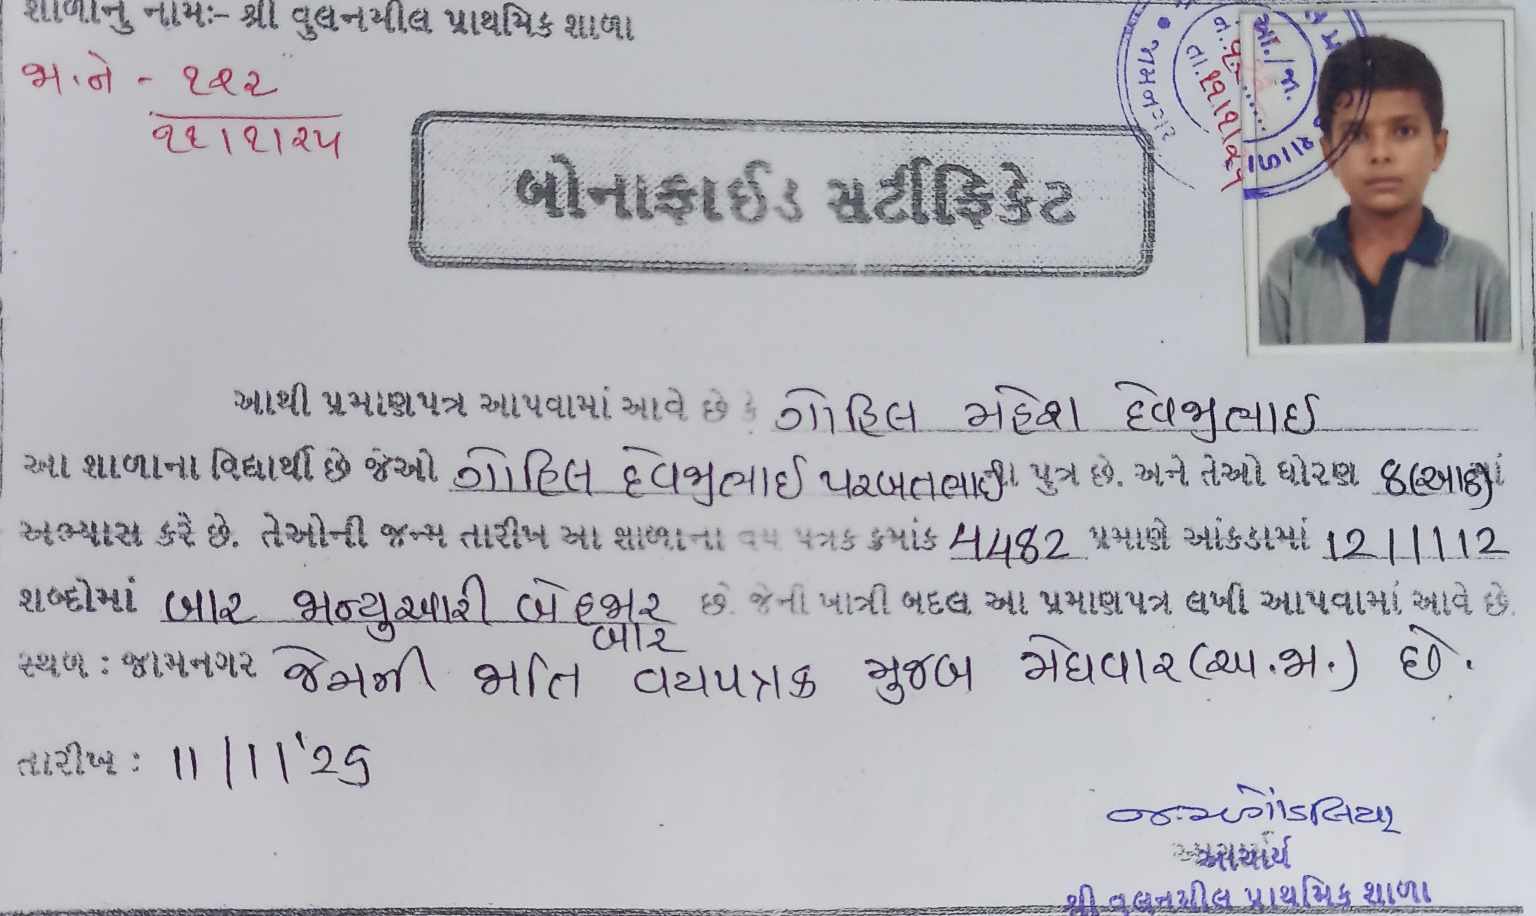 શાળાનું નામઃ- શ્રી વુલનમીલ પ્રાથમિક શાળા
જા.નં - ૧૨૨
૧૧/૧/૨૫
જામનગર
આ./જા.
નં.
તા. ૧૧/૧/૨૫
બોનાફાઈડ સર્ટીફિકેટ
આથી પ્રમાણપત્ર આપવામાં આવે છે કે ગોહિલ મહેશ દેવજીભાઈ
આ શાળાના વિદ્યાર્થી છે જેઓ ગોહિલ દેવજીભાઈ પરબતભાઈના પુત્ર છે. અને તેઓ ધોરણ 8(આઠ)માં
અભ્યાસ કરે છે. તેઓની જન્મ તારીખ આ શાળાના વય પત્રક ક્રમાંક 4482 પ્રમાણે આંકડામાં 12/1/12
શબ્દોમાં બાર જાન્યુઆરી બે હજાર બાર છે. જેની ખાત્રી બદલ આ પ્રમાણપત્ર લખી આપવામાં આવે છે.
સ્થળ : જામનગર જેમની જાતિ વયપત્રક મુજબ મેઘવાર(અ.જા.) છે.
તારીખ : 11/1/'25
આચાર્ય
શ્રી વુલનમીલ પ્રાથમિક શાળા